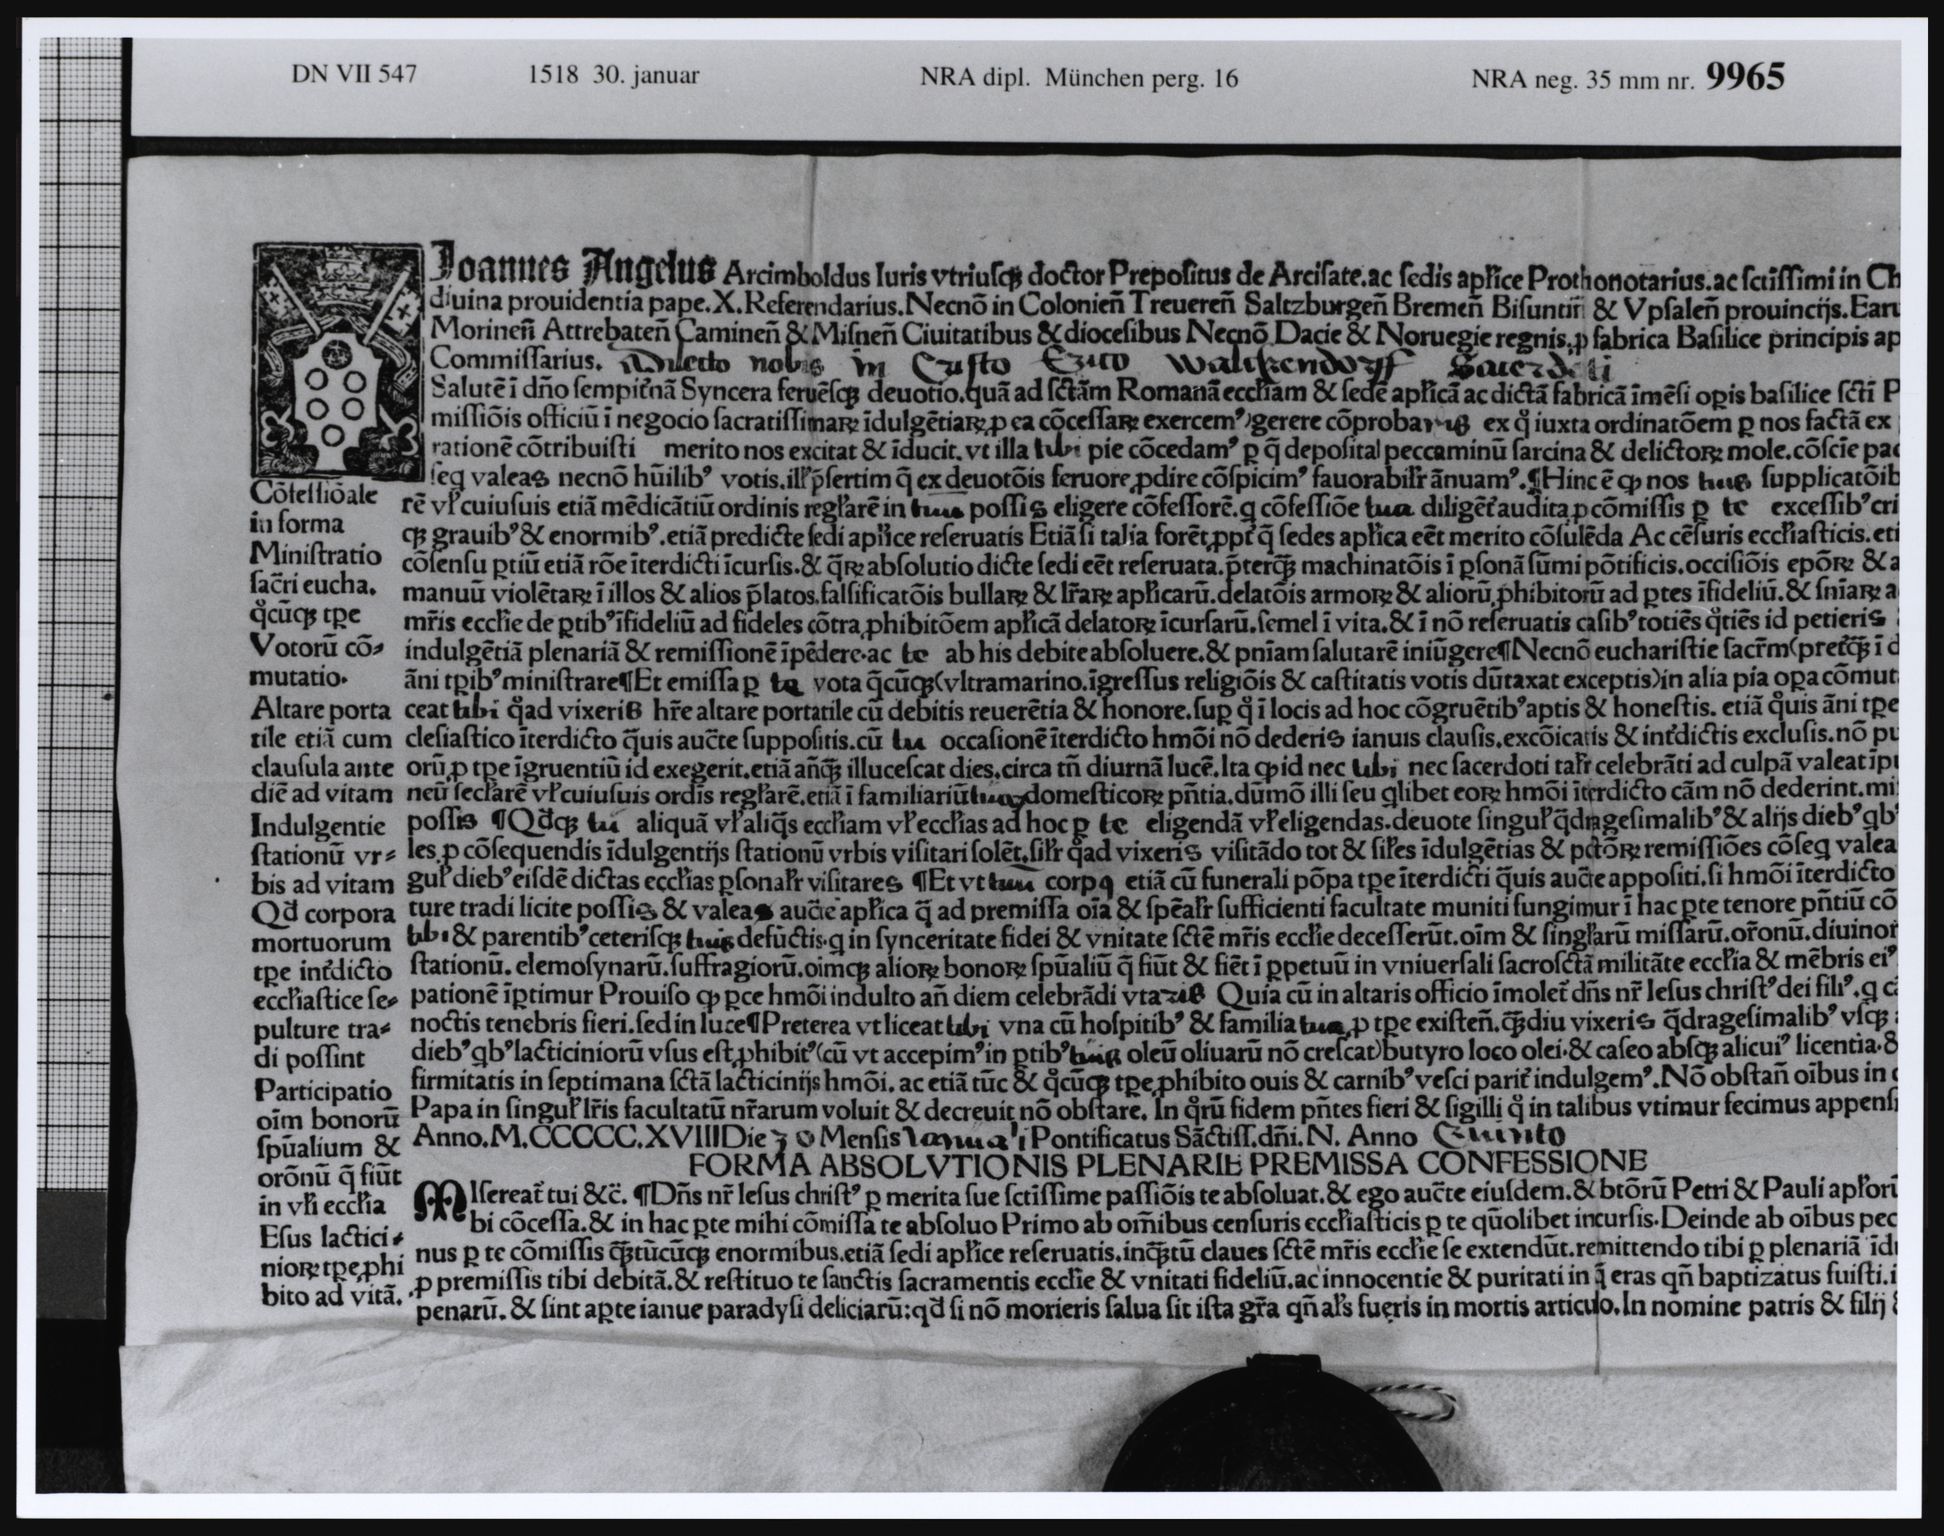 DN VII 547 1518 30. januar NRA dipl. München perg. 16 NRA neg. 35 mm nr. 9965
Joannes Angelus Arcimboldus Iuris vtriuſqꝫ doctor Prepoſitus de Arciſate.ac ſedis apl̄ice Prothonotarius.ac ſctiſſimi in Ch
diuina prouidentia pape.X.Referendarius.Necnō in Colonien̄ Treueren̄ Saltzburgen̄ Bremen̄ Biſuntin̄ & Vpſalen̄ prouincijs.Earu
Morinen̄ Attrebaten̄ Caminen̄ & Miſnen̄ Ciuitatibus & dioceſibus Necnō Dacie & Noruegie regnis.ꝓ fabrica Baſilice principis ap
Commiſſarius. Dilecto nobis in Cristo Erico Walkendorff Sacerdoti
Salutē ī dn̄o ſempit̄nā Syncera feruēſqꝫ deuotio.quā ad ſctām Romanā eccl̄iam & ſedē apl̄icā ac dictā fabricā īmēſi oꝑis baſilice ſcti P
miſſiōis officiū ī negocio ſacratiſſimaꝝ īdulgētiaꝝ,ꝓ ea cōceſſaꝝ exercemꝰ)gerere cōproba ex qͦ iuxta ordinatōem ꝑ nos factā ex
rationē cōtribuiſti merito nos excitat & īducit.vt illa tibi pie cōcedamꝰ ꝑ q̄ depoſita peccaminū ſarcina & delictoꝝ mole.cōſcīe pac
ſeq valeas necnō hūilibꝰ votis.ill̄ p̄ſertim q̄ ex deuotōis feruore ꝓdire cōſpicimꝰ fauorabilr̄ ānuamꝰ.¶Hinc ē ꝙ nos tuis ſupplicatōib
rē vl̄ cuiuſuis etiā mēdicātiū ordinis regl̄arē in tuum poſſis eligere cōfeſſorē.q cōfeſſiōe tua diligēt̄ audita,ꝓ cōmiſſis ꝑ te exceſſibꝰ cri
qꝫ grauibꝰ & enormibꝰ.etiā predicte ſedi apl̄ice reſeruatis Etiā ſi talia forēt,ꝓpt̄ q̄ ſedes apl̄ica eēt merito cōſulēda Ac cēſuris eccl̄iaſticis.eti
cōſenſu ꝑtiū etiā rōe īterdicti īcurſis.& q̄ꝝ abſolutio dicte ſedi eēt reſeruata.p̄terqꝫ machinatōis ī ꝑſonā ſūmi pōtificis.occiſiōis epōꝝ & a
manuū violētaꝝ ī illos & alios p̄latos.falſificatōis bullaꝝ & lr̄aꝝ apl̄icarū.delatōis armoꝝ & aliorū,ꝓhibitorū ad ꝑtes īfideliū.& ſnīaꝝ a
mr̄is eccl̄ie de ꝑtibꝰ īfideliū ad fideles cōtra,ꝓhibitōem apl̄icā delatoꝝ īcurſarū.ſemel ī vita.& ī nō reſeruatis caſibꝰ totiēs qͦtiēs id petieris
indulgētiā plenariā & remiſſionē īpēdere.ac te ab his debite abſoluere.& pnīam ſalutarē iniūgere¶Necnō euchariſtie ſacr̄m(pret̄qꝫ ī d
āni tꝑibꝰ miniſtrare¶Et emiſſa ꝑ te vota q̄cūqꝫ(vltramarino.īgreſſus religiōis & caſtitatis votis dūtaxat exceptis)in alia pia oꝑa cōmut
ceat tibi qͦad vixeris hr̄e altare portatile cū debitis reuerētia & honore.ſuꝑ qͦ ī locis ad hoc cōgruētibꝰ aptis & honeſtis. etiā qͦuis āni tꝑe
cleſiaſtico īterdicto q̄uis auct̄e ſuppoſitis.cū tu occaſionē īterdicto hmōi nō dederis ianuis clauſis.excōicatis & int̄dictis excluſis.nō pu
orū,ꝓ tꝑe īgruentiū id exegerit.etiā an̄qꝫ illuceſcat dies.circa tn̄ diurnā lucē.Ita ꝙ id nec tibi nec ſacerdoti talr̄ celebrāti ad culpā valeat īpu
neū ſecl̄arē vl̄ cuiuſuis ordīs regl̄arē.etiā ī familiariū tuoꝝ domeſticoꝝ pn̄tia.dūmō illi ſeu qlibet eoꝝ hmōi īterdicto cām nō dederint.mi
poſſis ¶Qd̄qꝫ tu aliquā vl̄ aliq̄s eccl̄iam vl̄ eccl̄ias ad hoc ꝑ te eligendā vl̄ eligendas.deuote ſingul̄ q̄drageſimalibꝰ & alijs diebꝰ qbꝰ
les,ꝓ cōſequendis īdulgentijs ſtationū vrbis viſitari ſolēt.ſilr̄ qͦad vixeris viſitādo tot & ſil̄es īdulgētias & pctōꝝ remiſſiōes cōſeq valea
gul̄ diebꝰ eiſdē dictas eccl̄ias ꝑſonalr̄ viſitares ¶Et vt tuum corpꝯ etiā cū funerali pōpa tꝑe īterdicti q̄uis auct̄e appoſiti.ſi hmōi īterdicto
ture tradi licite poſſis & valeas auct̄e apl̄ica q̄ ad premiſſa oīa & ſpēalr̄ ſufficienti facultate muniti fungimur ī hac ꝑte tenore pn̄tiū cō
tibi & parentibꝰ ceteriſqꝫ tuis defūctis.q in ſynceritate fidei & vnitate ſctē mr̄is eccl̄ie deceſſerūt.oīm & ſingl̄arū miſſarū.or̄onū.diuinor
ſtationū.elemoſynarū.ſuffragiorū.oīmqꝫ alioꝝ bonoꝝ ſpūaliū q̄ fiūt & fiēt ī ꝑpetuū in vniuerſali ſacroſctā militāte eccl̄ia & mēbris eiꝰ
pationē īꝑtimur Prouiſo ꝙ ꝑce hmōi indulto an̄ diem celebrādi vtaris Quia cū in altaris officio īmolet̄ dn̄s nr̄ Ieſus chriſtꝰ dei filiꝰ.q cā
noctis tenebris fieri.ſed in luce¶Preterea vt liceat tibi vna cū hoſpitibꝰ & familia tua,ꝓ tꝑe exiſten̄.qꝫdiu vixeris q̄dragefimalibꝰ vſqꝫ
diebꝰ qbꝰ lacticiniorū vſus eſt,ꝓhibitꝰ(cū vt accepimꝰ in ꝑtibꝰ tuis oleū oliuarū nō creſcat)butyro loco olei.& caſeo abſqꝫ alicuiꝰ licentia.&
firmitatis in ſeptimana ſctā lacticinijs hmōi. ac etiā tūc & qͦcūqꝫ tꝑe,ꝓhibito ouis & carnibꝰ veſci parit̄ indulgemꝰ.Nō obſtan̄ oībus in
Papa in ſingul̄ lr̄is facultatū nr̄arum voluit & decreuit nō obſtare. In qͦrū fidem pn̄tes fieri & ſigilli qͦ in talibus vtimur fecimus appenſi
Anno.M.CCCCC.XVIII Die 30 Menſis Januarii Pontificatus Sāctiſſ.dn̄i.N. Anno Quinto
FORMA ABSOLVTIONIS PLENARIE PREMISSA CONFESSIONE
MIſereat̄ tui &c̄. ¶Dn̄s nr̄ Ieſus chriſtꝰ ꝑ merita ſue ſctiſſime paſſiōis te abſoluat.& ego auct̄e eiuſdem.& btōrū Petri & Pauli apl̄orū
bi cōceſſa.& in hac ꝑte mihi cōmiſſa te abſoluo Primo ab om̄ibus cenſuris eccl̄iaſticis ꝑ te qūolibet incurſis.Deinde ab oībus pec
nus ꝑ te cōmiſſis qꝫtūcūqꝫ enormibus.etiā ſedi apl̄ice reſeruatis.inqꝫtū claues ſctē mr̄is eccl̄ie ſe extendūt.remittendo tibi ꝑ plenariā īdu
ꝓ premiſſis tibi debitā.& reſtituo te ſanctis ſacramentis eccl̄ie & vnitati fideliū.ac innocentie & puritati in q̄ eras qn̄ baptizatus fuiſti.i
penarū.& ſint aꝑte ianue paradyſi deliciarū:qd̄ ſi nō morieris ſalua ſit iſta gr̄a qn̄ al̄s fueris in mortis articulo.In nomine patris & filij &
Cōfeſſiōale
in forma
Miniſtratio
ſac̄ri eucha.
qͦcūqꝫ tꝑe
Votorū cō⸗
mutatio.
Altare porta
tile etiā cum
clauſula ante
diē ad vitam
Indulgentie
ſtationū vr⸗
bis ad vitam
Qd̄ corpora
mortuorum
tꝑe int̄dicto
eccl̄iaſtice ſe⸗
pulture tra⸗
di poſſint
Participatio
oīm bonorū
ſpūalium &
orōnū q̄ fiūt
in vl̄i eccl̄ia
Eſus lactici⸗
nioꝝ tꝑe,ꝓhi
bito ad vitā.